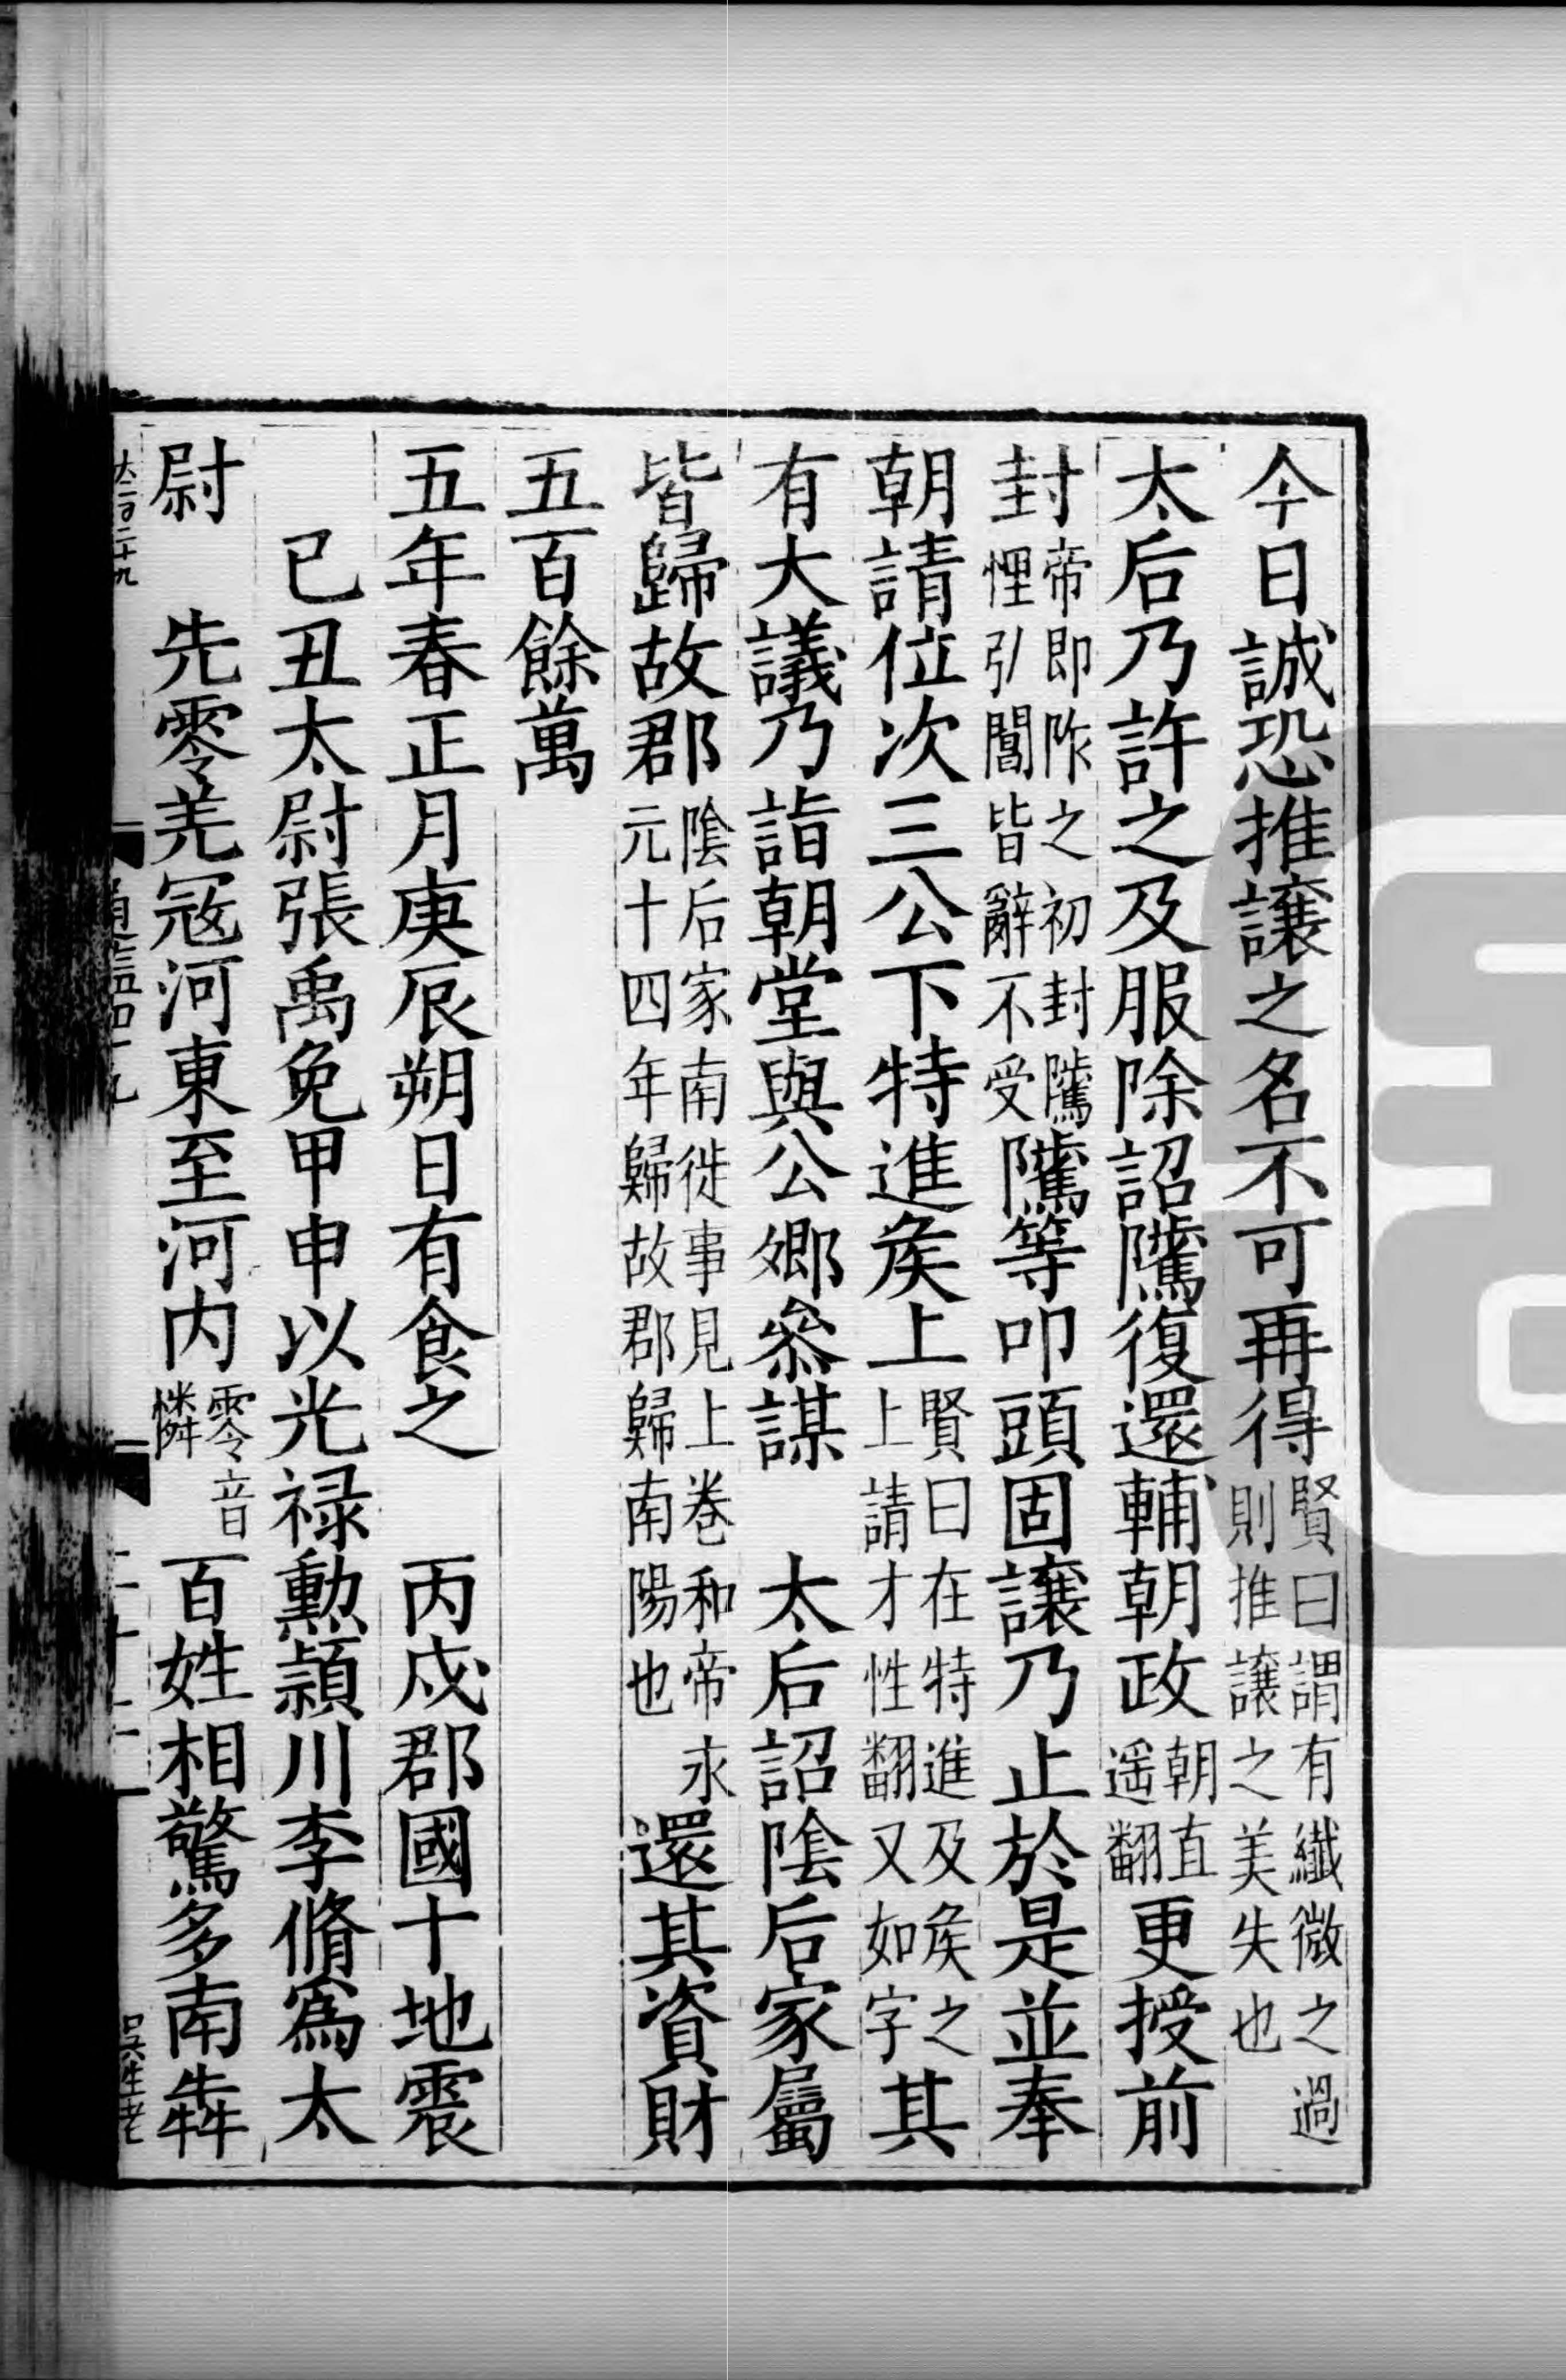 今日誠恐推讓之名不可再得賢曰謂有纖微之過則推讓之美失也
太后乃許之及服除詔隲復還輔朝政朝直遥翻更授前
封帝即阼之初封隲悝引閶皆辭不受隲等叩頭固讓乃止於是並奉
朝請位次三公下特進侯上賢曰在特進及侯之上請才性翻又如字其
有大議乃詣朝堂與公卿叅謀　太后詔隂后家屬
皆歸故郡隂后家南徙事見上卷和帝永元十四年歸故郡歸南陽也還其資財
五百餘萬
五年春正月庚辰朔日有食之　丙戌郡國十地震
己丑太尉張禹免甲申以光禄勲潁川李脩爲太
尉　先零羌寇河東至河内零音憐百姓相驚多南犇